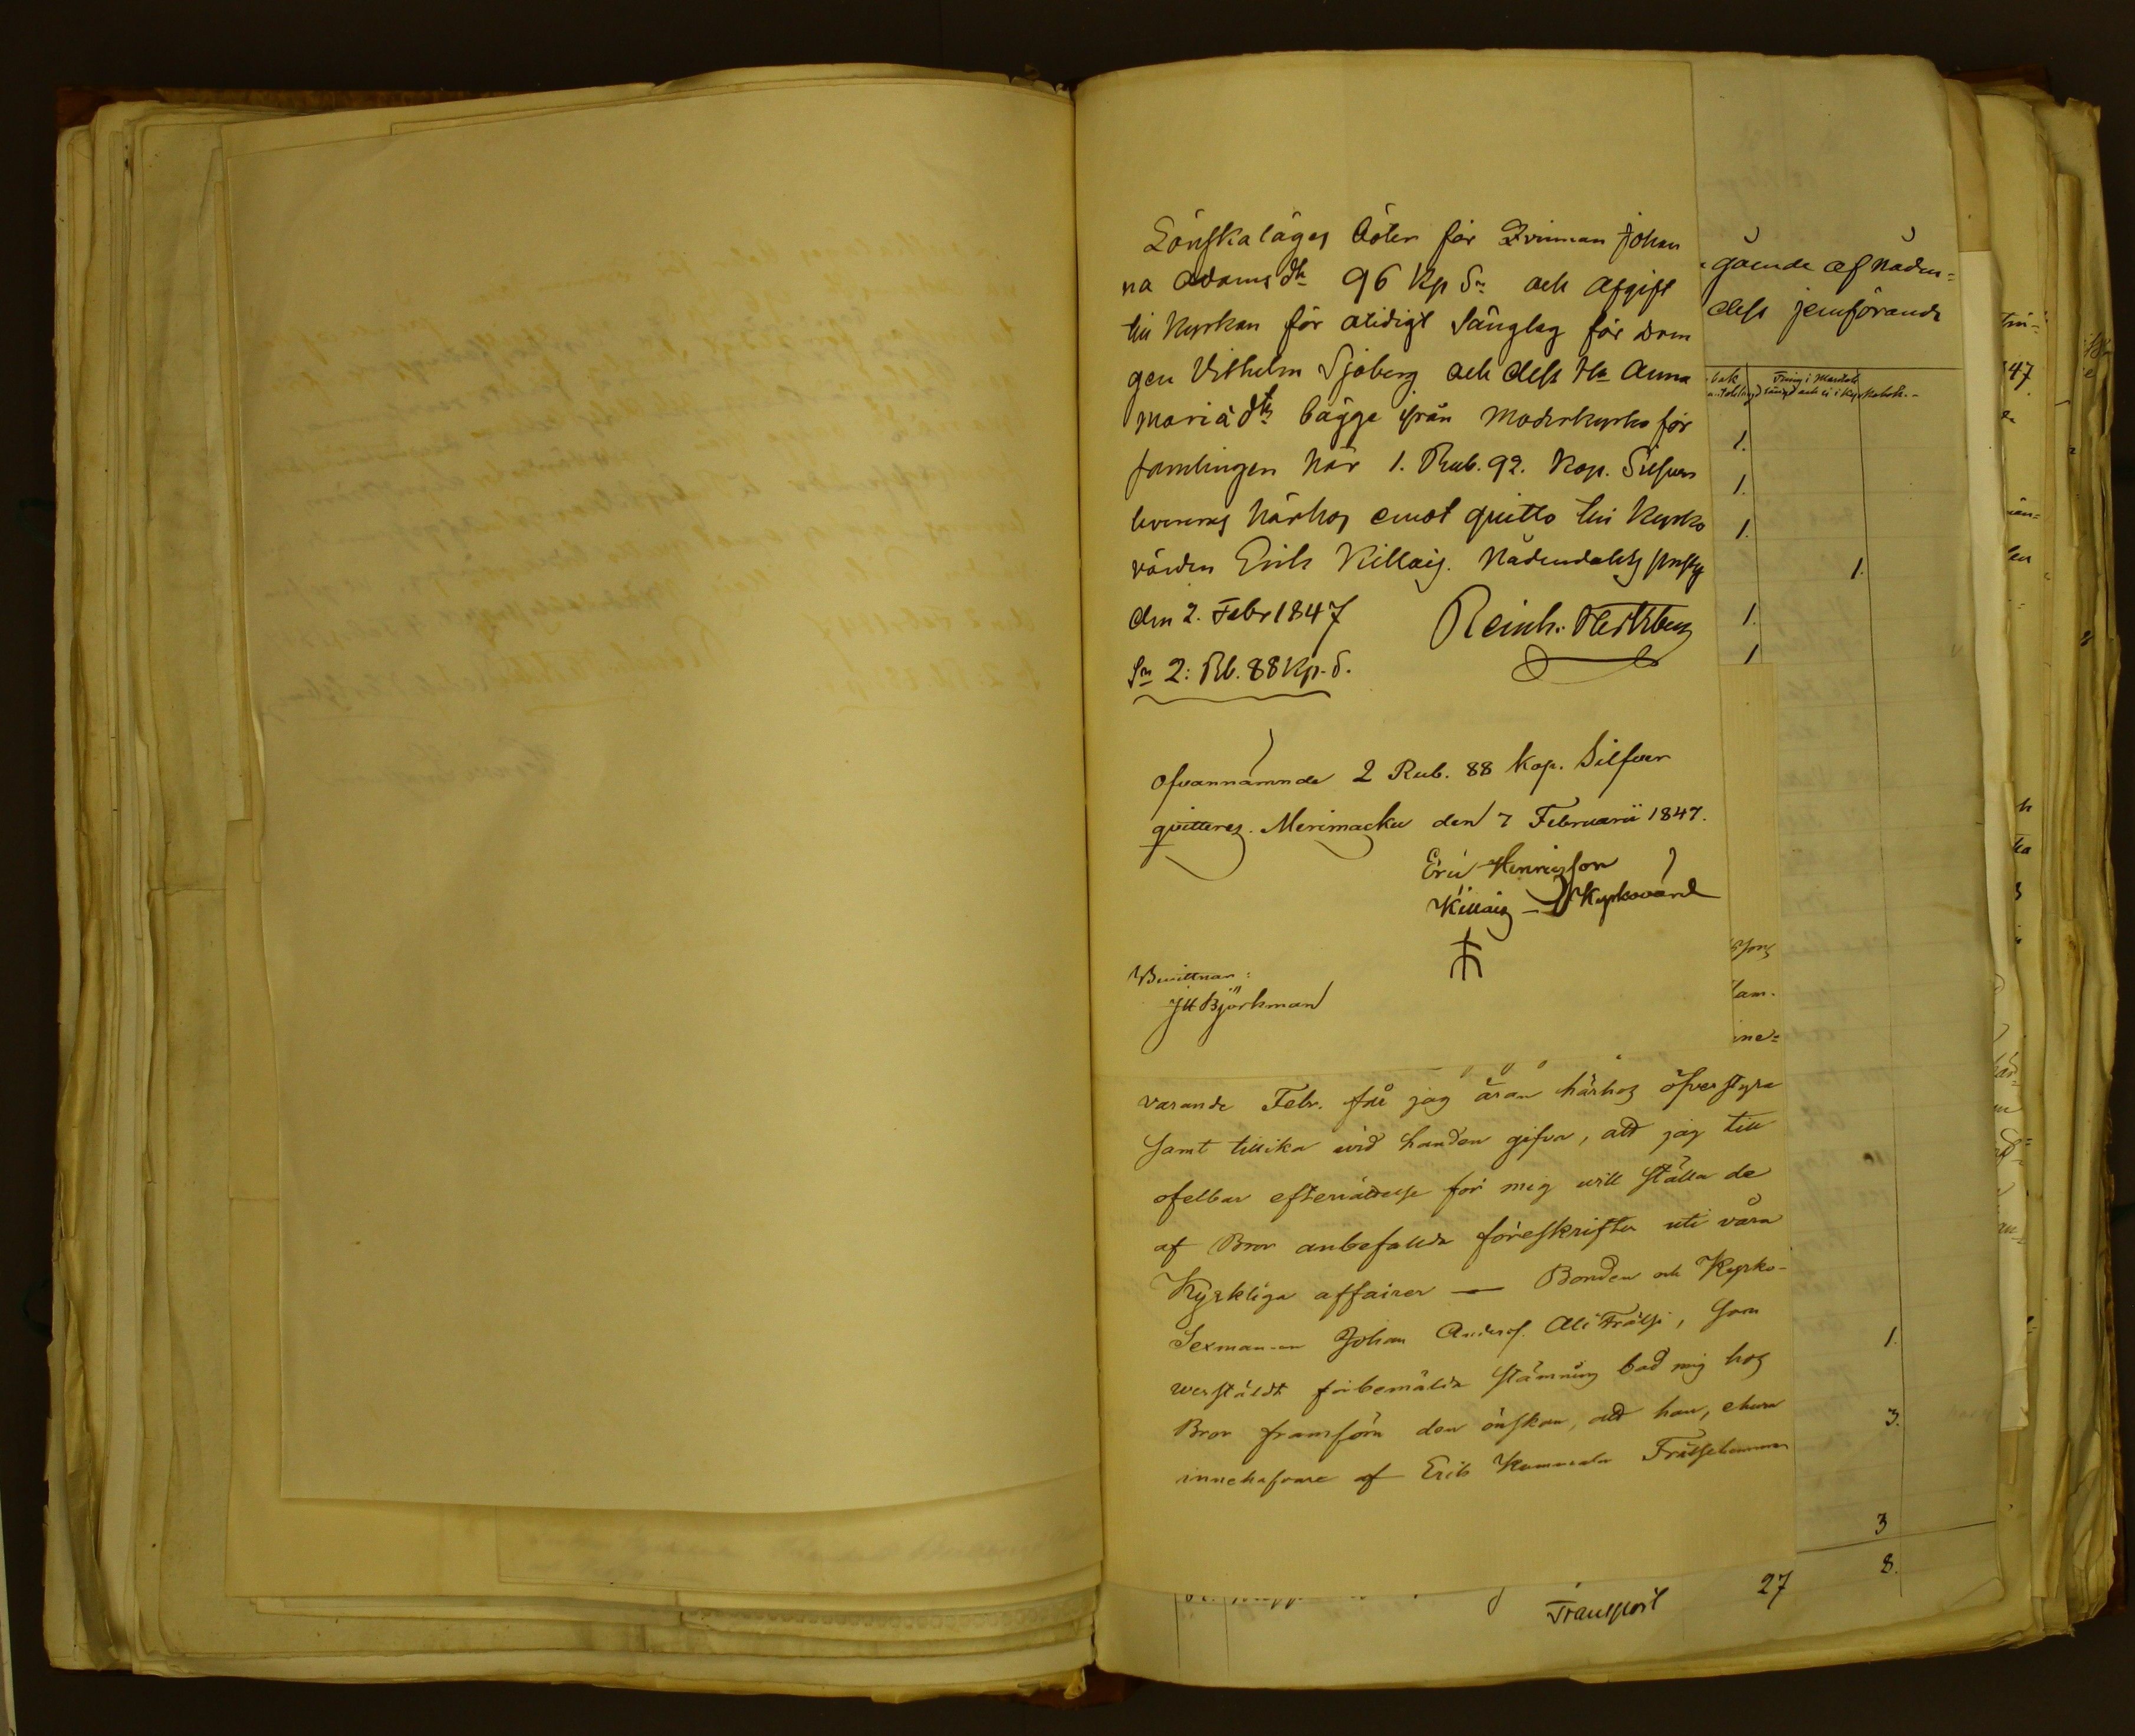 Lönskaläges böter för Qvinnan Johan
na Adams dr 96 Kp Sr och afgift
till Kyrkan för otidigt sänglag för Dren
gen Vilhelm Sjöberg och dess Hu Anna
Maria dtr bägge från Moderkyrko för
samlingen här 1. Rub. 92. Kop. Silfver
levereras härhos emot qvitto till Kyrko
värden Erik Killais. Nådendals
den 2. Febr 1847 Reinh. Hertzberg
Sm 2: Rb. 88 Kp. S.
Ofvannämnde 2 Rub. 88 Kop. Silfver
qvitteras. Merimasku den 7 Februarii 1847.
Eric Henricsson
Killais Kyrkovärd
Bevittnar:
JH Björkman
varande Febr. får jag äran härhos öfverstyra
samt tillika vid handen gifva, att jag till
ofelbar efterrättelse för mig vill ställa de
af Bror anbefallda föreskrifter uti våra
Kyrkliga affairer — Bonden och Kyrko-
Sexmannen Johan Anderss. Ali Frälsi, som
verstäldt förbemälde stämning bad mig hos
Bror framföra den önskan, att han, ehuru
innehafvare af Erik Kummala Frälsehemman
gående af Nåden=
dess jemförande
1.
1.
1.
1.
1.
1
1.
3.
3
Transport 27 8.
sons
sam-
ine=
47